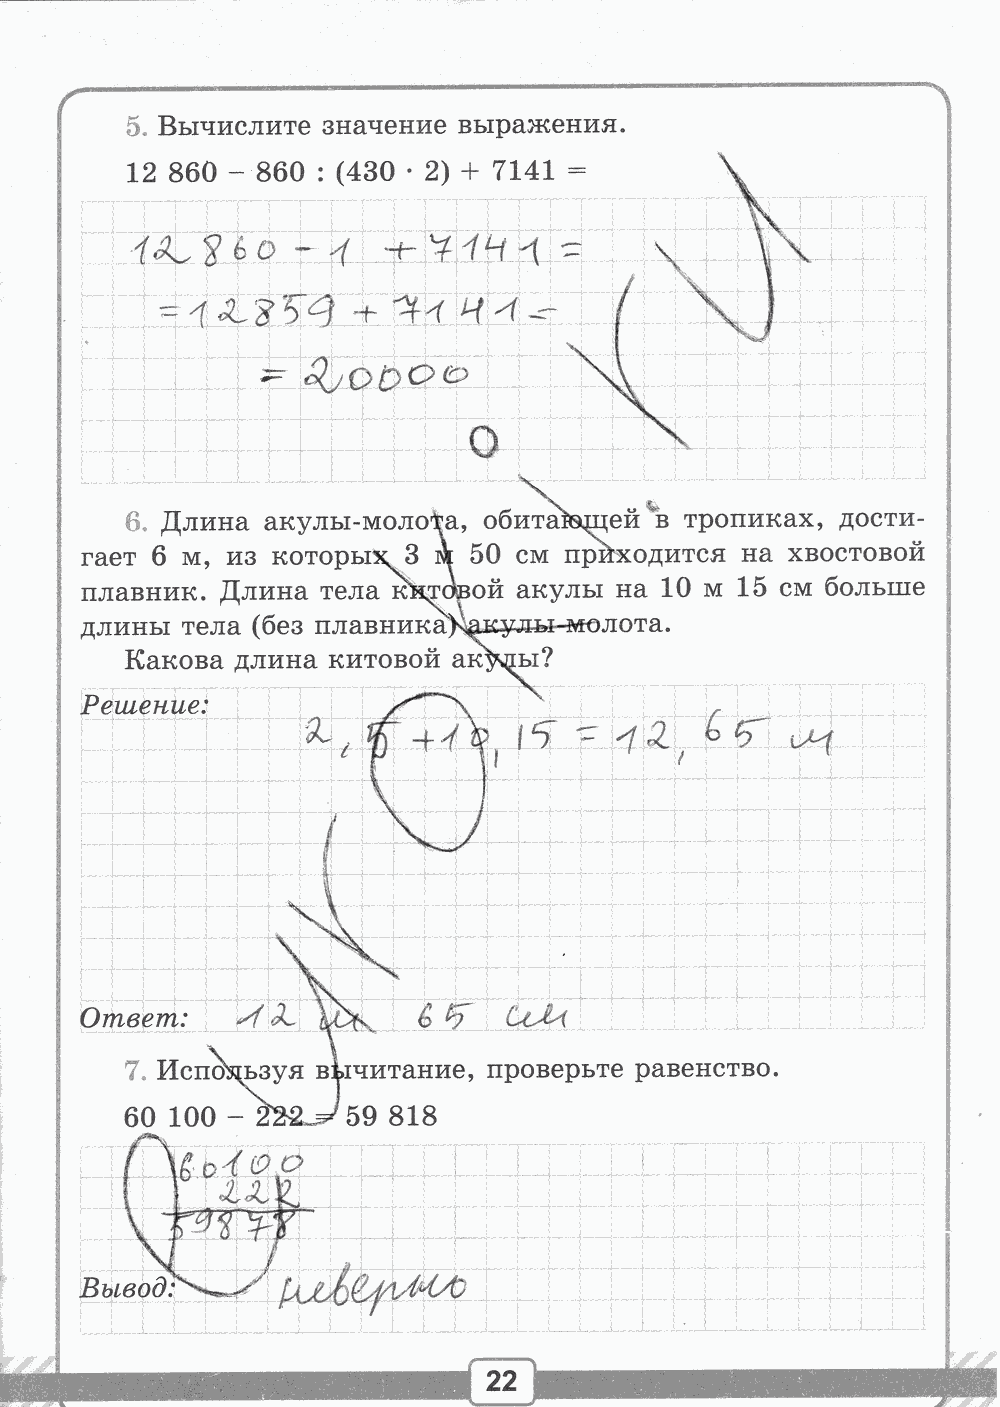 5. Вычислите значение выражения.
12 860 – 860 : (430 · 2) + 7141 =
12860 - 1 + 7141 =
= 12859 + 7141 =
= 20000
6. Длина акулы-молота, обитающей в тропиках, дости-
гает 6 м, из которых 3 м 50 см приходится на хвостовой
плавник. Длина тела китовой акулы на 10 м 15 см больше
длины тела (без плавника) акулы-молота.
Какова длина китовой акулы?
Решение:
2,5 + 10,15 = 12,65 м
Ответ: 12 м 65 см
7. Используя вычитание, проверьте равенство.
60 100 – 222 = 59 818
60100
222
59878
Вывод: неверно
22